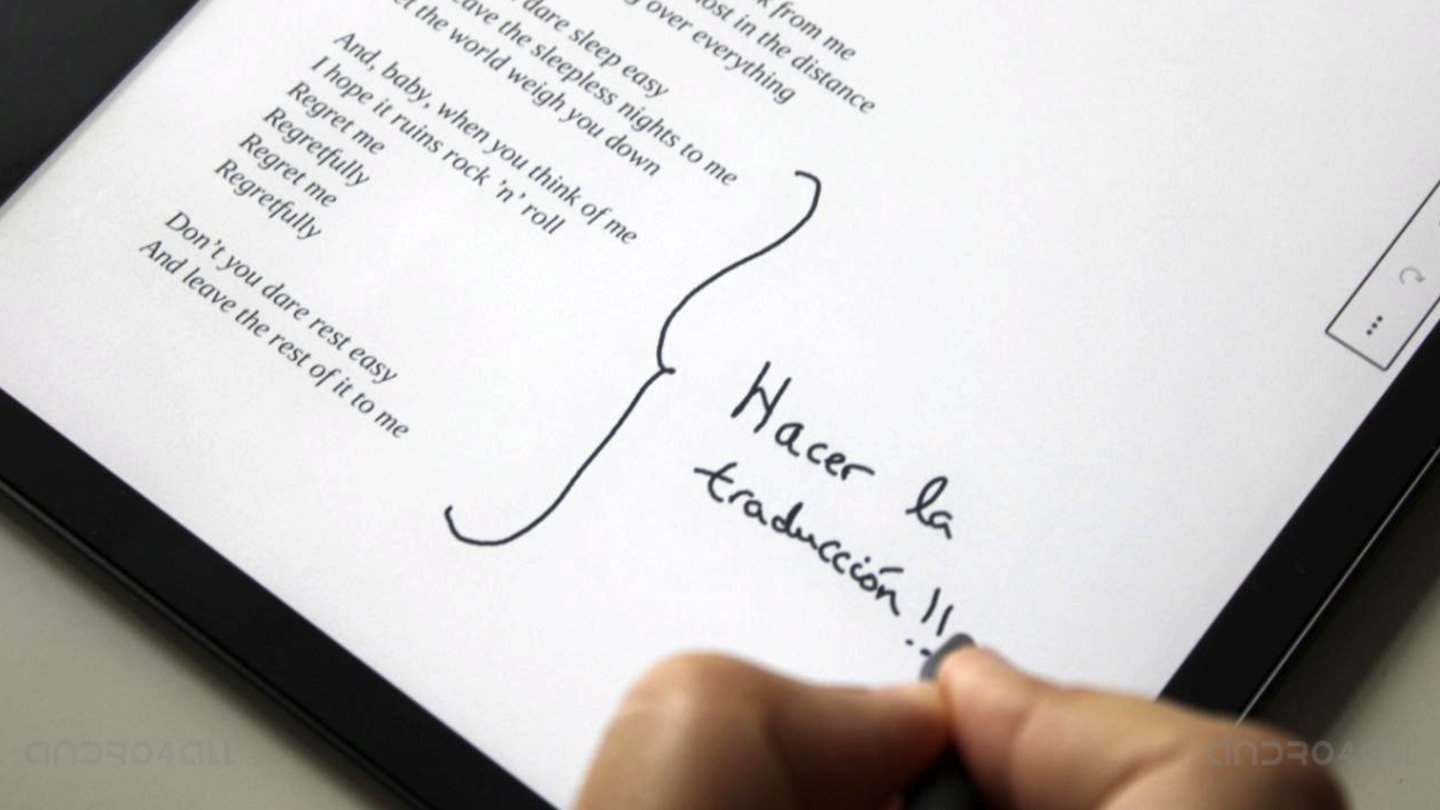 from me
in the distance
over everything
dare sleep easy
the sleepless nights to me
the world weigh you down
And, baby, when you think of me
I hope it ruins rock 'n' roll
Regret me
Regretfully
Regret me
Regretfully
Don't you dare rest easy
And leave the rest of it to me
Hacer la
traducción!!
ANDRO4ALL
ANDRO4ALL